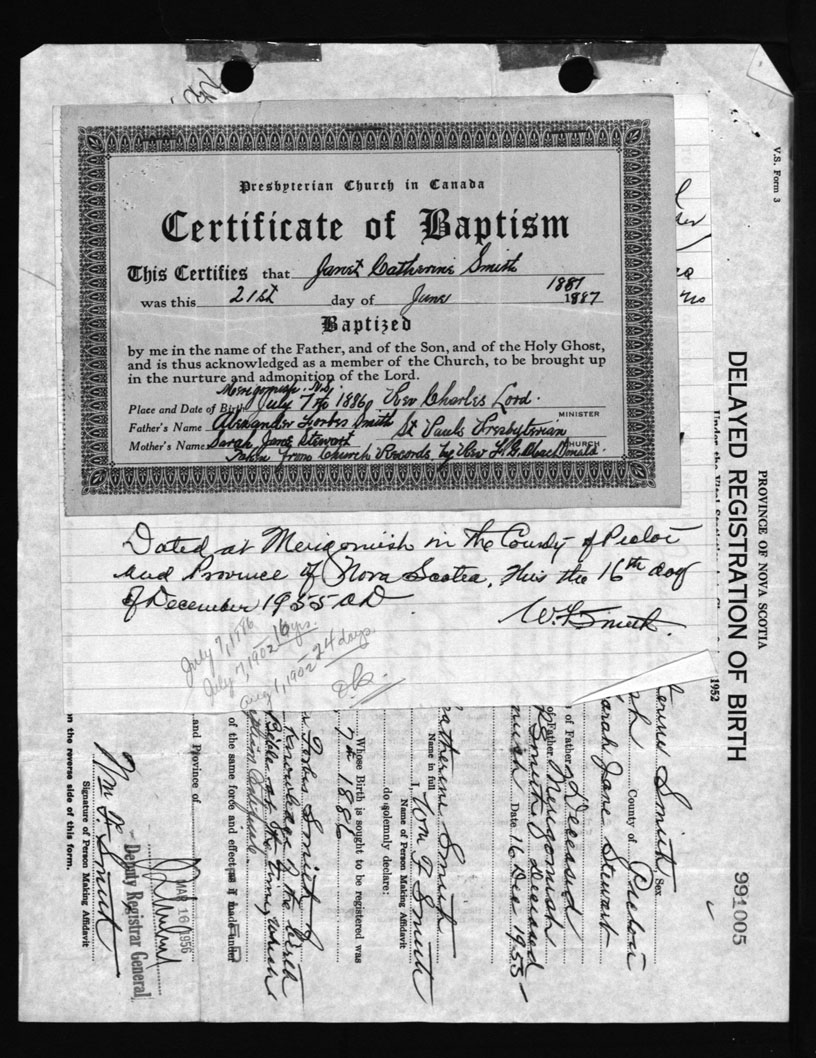 Presbyterian Church in Canada
Certificate of Baptism
This Certifies that Janet Catherine Smith
1887
was this 21st day of June 1887
Baptized
by me in the name of the Father, and of the Son, and of the Holy Ghost,
and is thus acknowledged as a member of the Church, to be brought up
in the nurture and admonition of the Lord.
Merigomish. N.S.
Place and Date of Birth July 7th 1886 Rev Charles Lord.
MINISTER
Father's Name Alexander Forbes Smith St Pauls Presbyterian
CHURCH
Mother's Name Sarah Jane Stewart
Taken from Church Records by Rev
Dated at Merigomish in the County of Pictou
and Province of Nova Scotia, this the 16th day
of December 1955 A D
Smith.
July 7, 1886
July 7, 1902 – 16 yrs.
Aug 1, 1902 – 24 days
o.k.
V.S. Form 3
PROVINCE OF NOVA SCOTIA
DELAYED REGISTRATION OF BIRTH
1952
991005
Smith Sex
County of Pictou
Sarah Jane Stewart
of Father Deceased
of Father Merigomish
Smith Deceased
Date 16 Dec 1955
Catherine Smith
Name in full
I, Wm F Smith
Name of Person Making Affidavit
do solemnly declare:
Whose Birth is sought to be registered was
7th 1886
Forbes Smith
Knowledge of the birth
Bible at the time
of the same force and effect as if made under
and Province of
MAR 16 1956
Deputy Registrar General
Wm F. Smith
Signature of Person Making Affidavit
on the reverse side of this form.